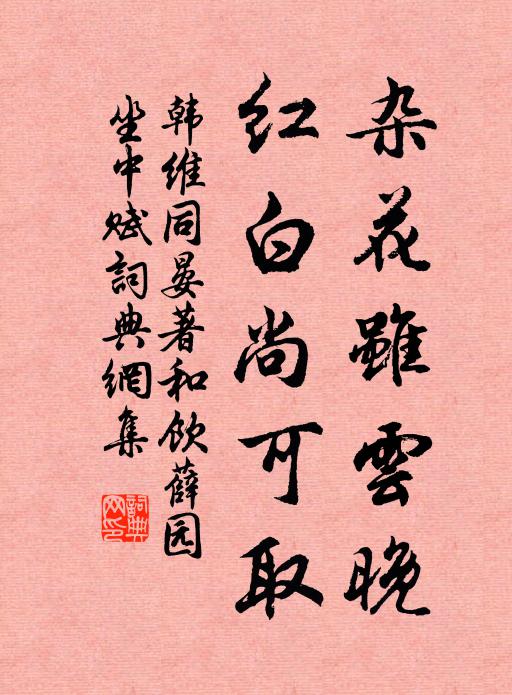 杂花雖雲晚
紅白尚可取
韩維同晏著和饮薛园
坐中赋詞典網集
詞典网印